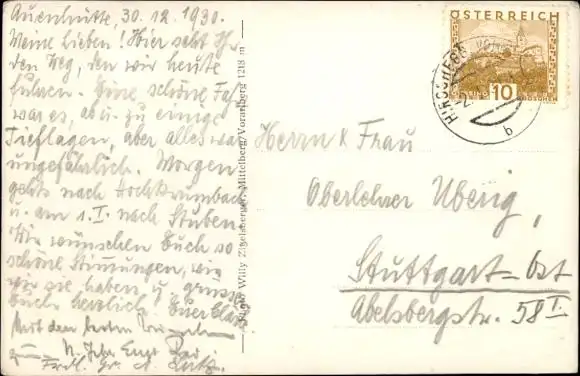 Auenhütte, 30.12.1930.
Meine Lieben! Hier seht Ihr
den Weg, den wir heute
fuhren. Eine schöne
war es, ab u. zu einige
Tieflagen, aber alles war
ungefährlich. Morgen
gehts nach Hochkrumbach
u. am 1.I. nach Stuben.
Wir wünschen Euch so
schöne Stimmungen, wie
wir sie haben u. grüssen
Euch herzlich. Euer
Mit den besten
zum N. Jahr Euer
Frdl. Gr.
Photo Willy Zigelsberger, Mittelberg/Vorarlberg 1218 m
ÖSTERREICH
10
GROSCHEN
HIRSCHEGG
b
Herrn & Frau
Oberlehrer Uberig,
Stuttgart-Ost
Abelsbergstr. 58 I